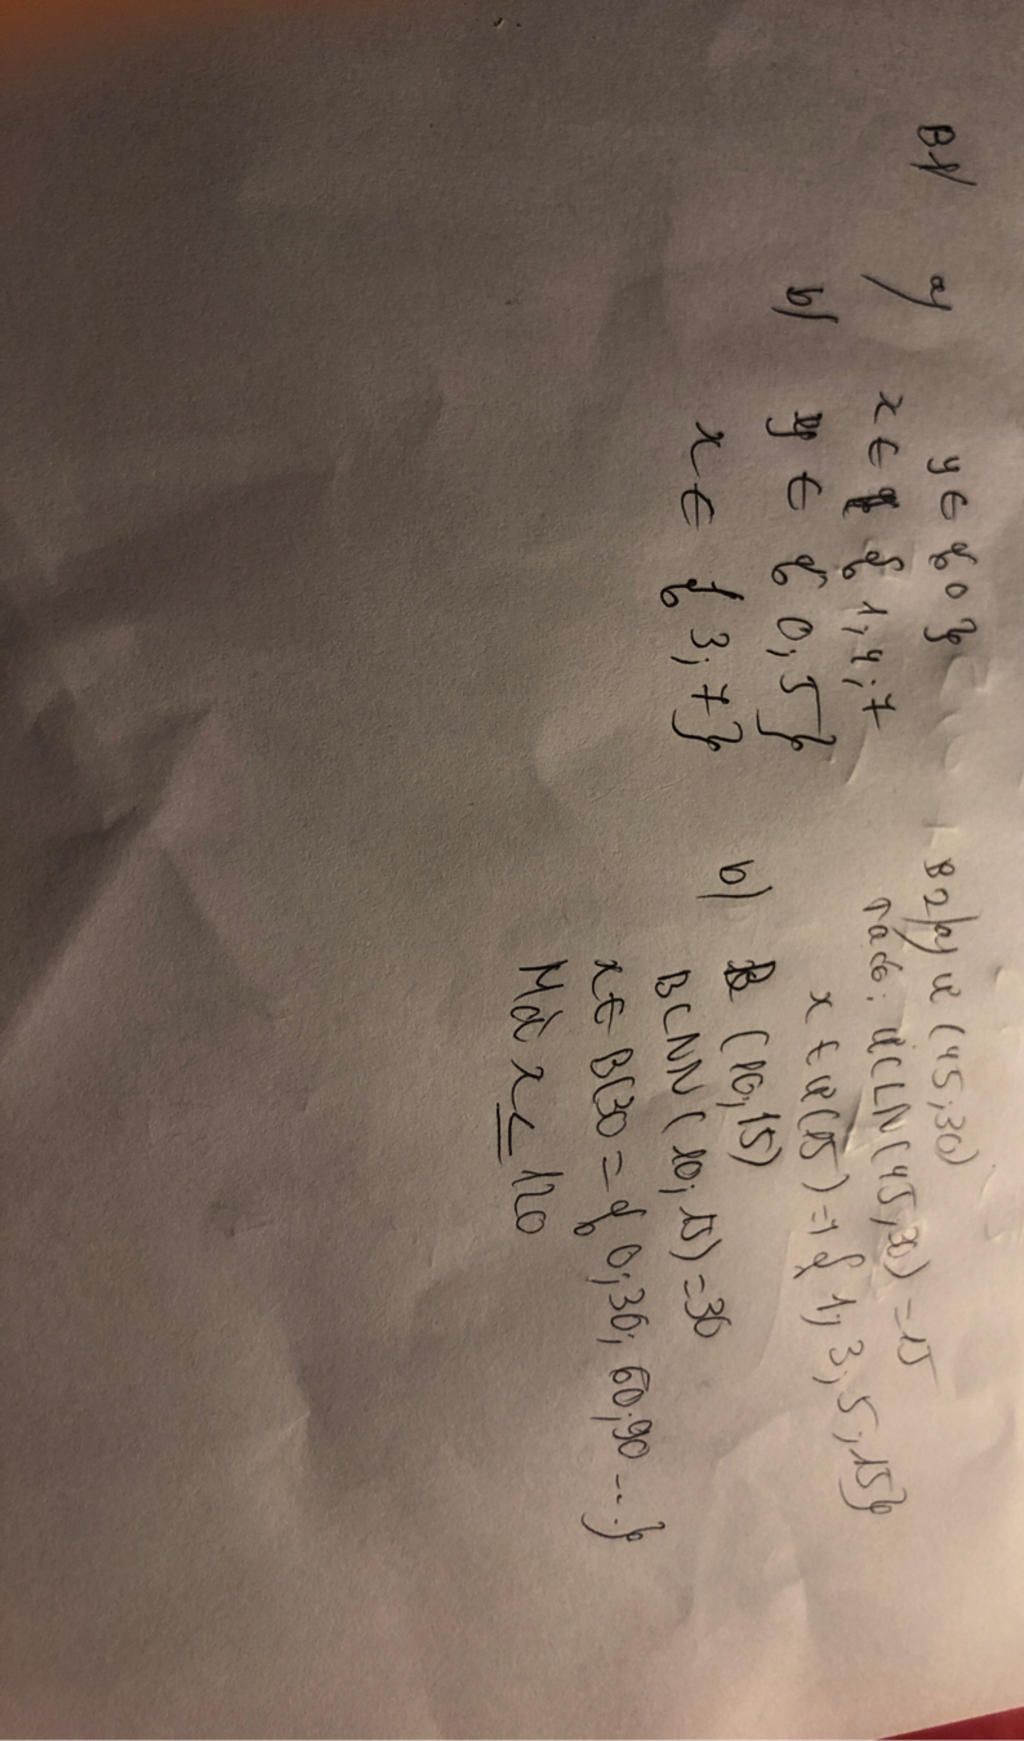 B1/ a/ y ∈ {0}
x ∈ {1; 4; 7
b/ y ∈ {0; 5}
x ∈ {3; 7}
B2/a) Ư (45; 30)
Ta có: ƯCLN (45; 30) = 15
x ∈ Ư(15) = {1; 3; 5; 15}
b) B (10; 15)
BCNN (10; 15) = 30
x ∈ B(30 = {0; 30; 60; 90 ...}
Mà x ≤ 120